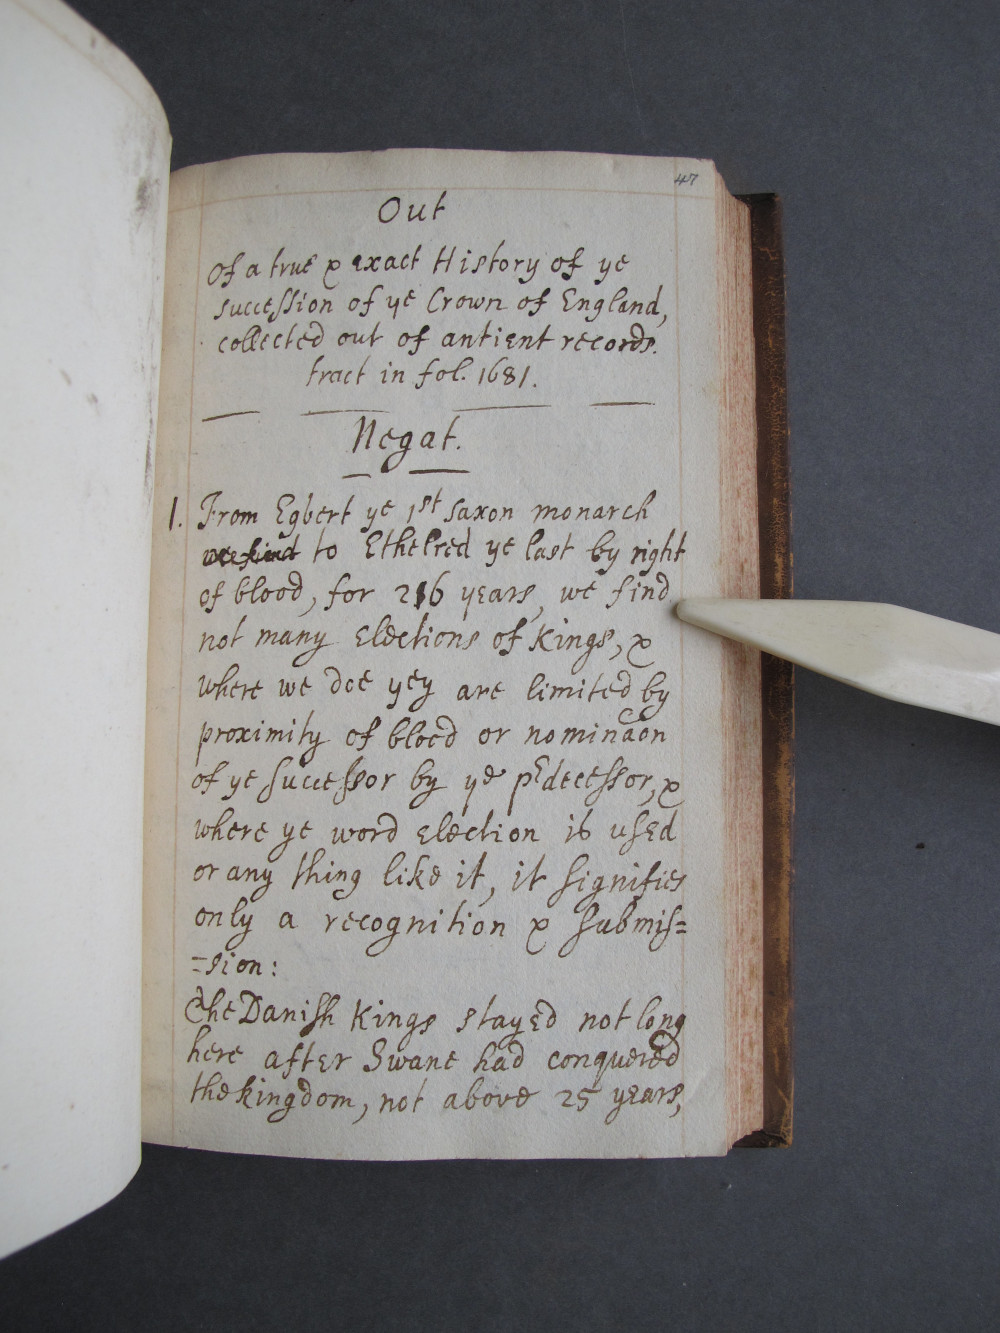 47
Out
Of a true & exact History of ye
succession of ye Crown of England,
collected out of antient records.
tract in fol. 1681.
Negat.
1. From Egbert ye 1st Saxon monarch
we find to Ethelred ye last by right
of blood, for 216 years, we find
not many elections of Kings, &
where we doe yey are limited by
proximity of blood or nominaon
of ye successor by ye prdecessor, &
where ye word election is used
or any thing like it, it signifies
only a recognition & submis=
=sion:
The Danish Kings stayed not long
here after Swane had conquered
the kingdom, not above 25 years,